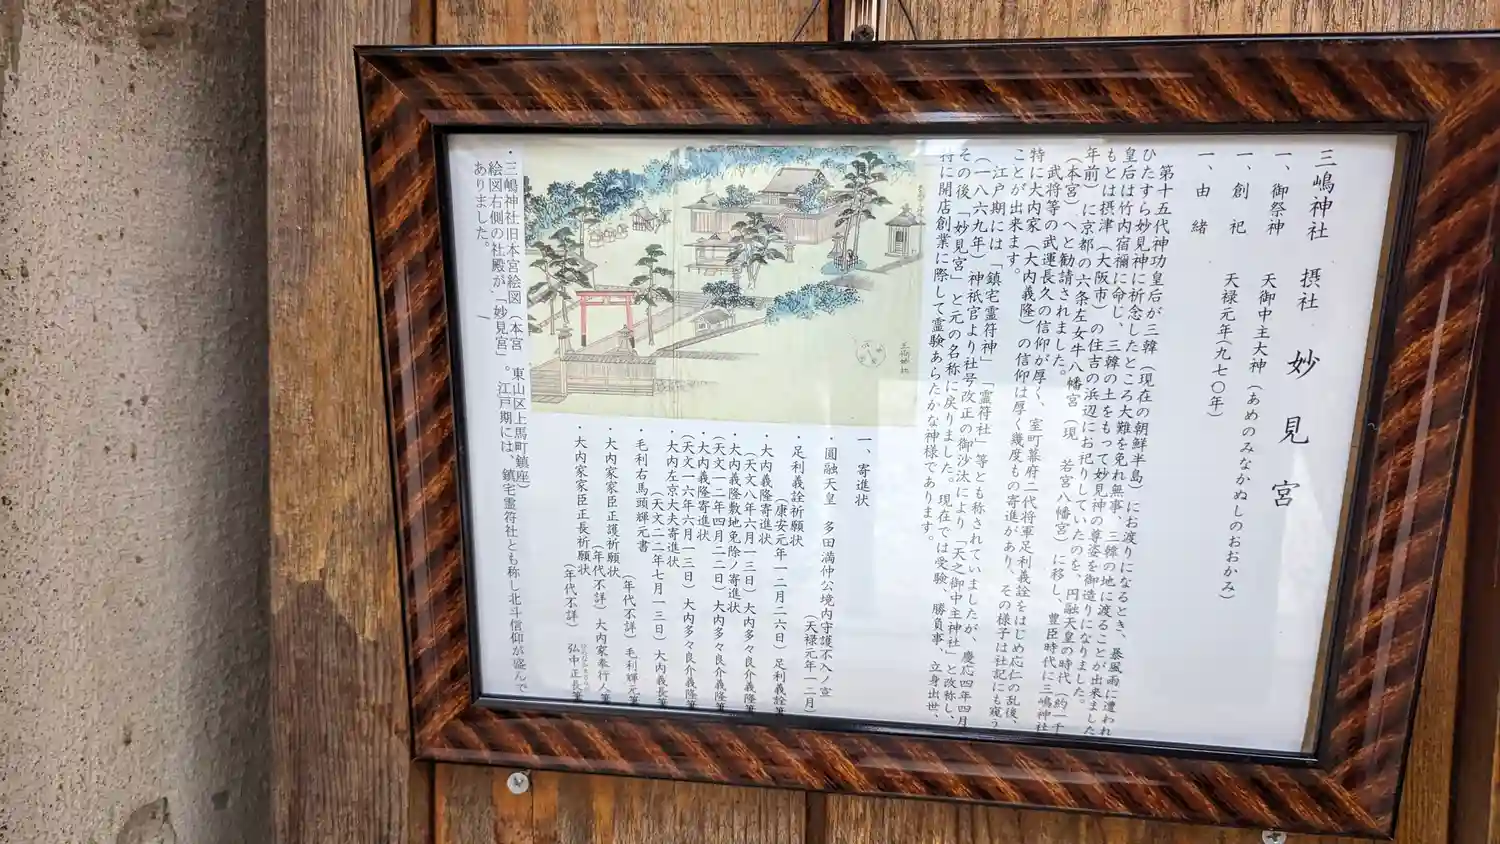 三嶋神社 摂社 妙見宮
一、御祭神 天御中主大神(あめのみなかぬしのおおかみ)
一、創祀 天禄元年(九七〇年)
一、由緒
第十五代神功皇后が三韓(現在の朝鮮半島)にお渡りになるとき、暴風雨に遭われ
ひたすら妙見神に祈念したところ大難を免れ無事、三韓の地に渡ることが出来ました
皇后は竹内宿禰に命じ、三韓の土をもって妙見神の尊姿を御造りになりました。
もとは摂津(大阪市)の住吉の浜辺にお祀りしていたのを、円融天皇の時代(約一千
年前)に京都の六条左女牛八幡宮(現 若宮八幡宮)に移し、豊臣時代に三嶋神社
(本宮)へと勧請されました。
武将等の武運長久の信仰が厚く、室町幕府二代将軍足利義詮をはじめ応仁の乱後、
特に大内家(大内義隆)の信仰は厚く幾度もの寄進があり、その様子は社記にも窺う
ことが出来ます。
江戸期には「鎮宅霊符神」「霊符社」等とも称されていましたが、慶応四年四月
(一八六九年)神祇官より社号改正の御沙汰により「天之御中主神社」と改称し、
その後「妙見宮」と元の名称に戻りました。現在では受験、勝負事、立身出世、
特に開店創業に際して霊験あらたかな神様であります。
一、寄進状
・圓融天皇 多田満仲公境内守護不入ノ宣
(天禄元年一二月)
・足利義詮祈願状
(康安元年一二月二六日)足利義詮筆
・大内義隆寄進状
(天文八年六月一三日)大内多々良介義隆筆
・大内義隆敷地免除ノ寄進状
(天文一二年四月二二日)大内多々良介義隆筆
・大内義隆寄進状
(天文一六年六月一三日)大内多々良介義隆筆
・大内左京大夫寄進状
(天文二二年七月一三日)大内義長筆
・毛利右馬頭輝元書
(年代不詳)毛利輝元筆
・大内家家臣正護祈願状
(年代不詳)大内家奉行人筆
・大内家家臣正長祈願状
(年代不詳) 弘中正長筆
・三嶋神社旧本宮絵図(本宮 東山区上馬町鎮座)
絵図右側の社殿が「妙見宮」。江戸期には、鎮宅霊符社とも称し北斗信仰が盛んで
ありました。